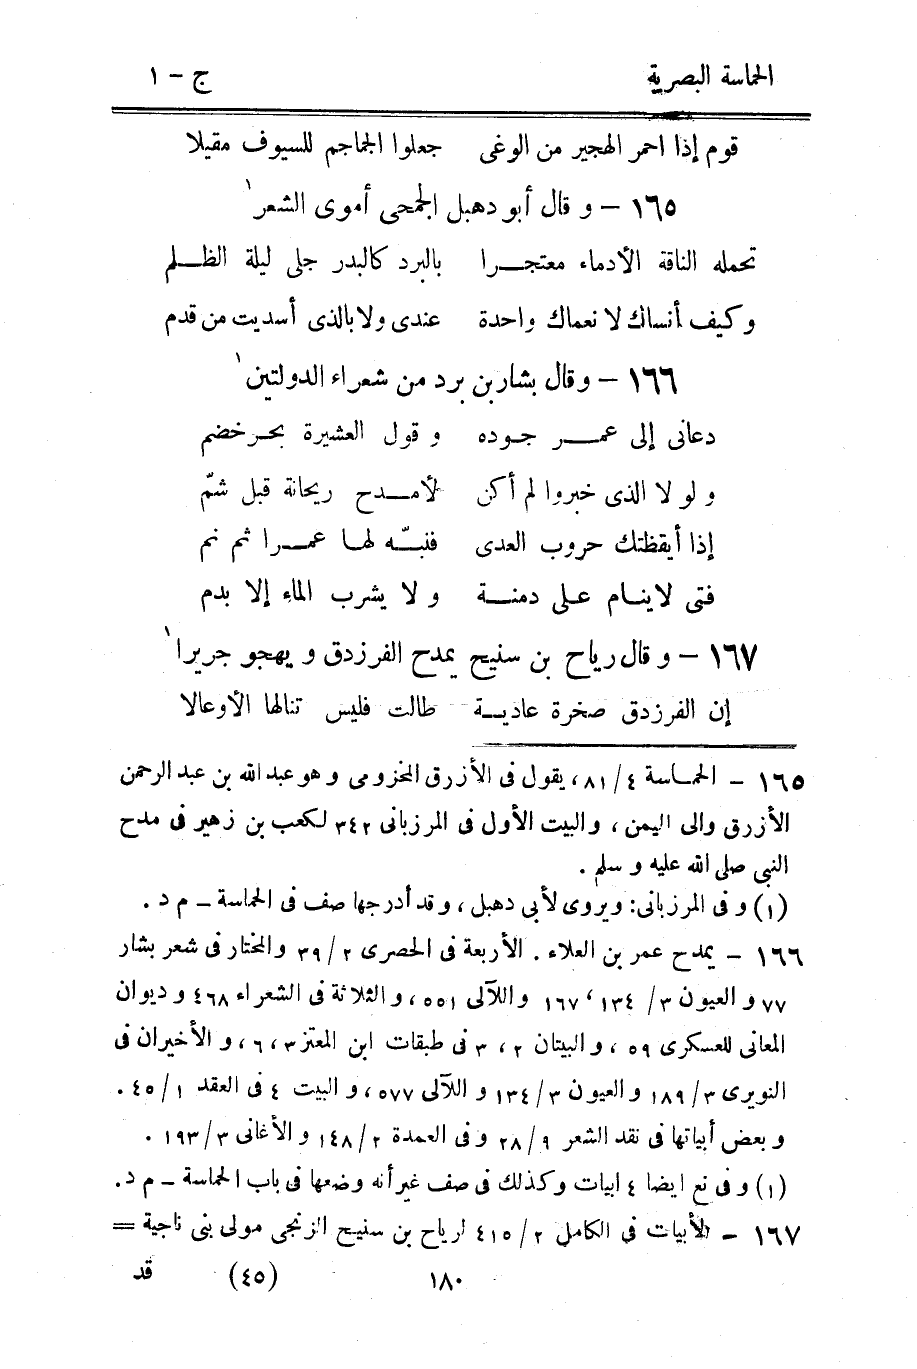 الحماسة البصرية ج – ١
قوم إذا احمر الهجير من الوغى جعلوا الجماجم للسيوف مقيلا
١٦٥ – و قال أبو دهبل الجمحى أموى الشعر١
تحمله الناقة الأدماء معتجـــرا بالبرد كالبدر جلى ليلة الظـــلم
وكيف أنساك لا نعماك واحدة عندى ولا بالذى أسديت من قدم
١٦٦ – وقال بشار بن برد من شعراء الدولتين١
دعانى إلى عمـــر جوده و قول العشيرة بحـر خضم
و لو لا الذى خبروا لم أكن لأمـــدح ريحانة قبل شمّ
إذا أيقظتك حروب العدى فنبّـــه لهـا عمـــرا ثم نم
فتى لا ينـام على دمنـــة و لا يشرب الماء إلا بدم
١٦٧ – و قال رياح بن سنيح يمدح الفرزدق و يهجو جريرا١
إن الفرزدق صخرة عاديـــة طالت فليس تنالها الأوعالا
١٦٥ – الحمـاسة ٤/ ٨١، يقول فى الأزرق المخزومى و هو عبد الله بن عبد الرحمن
الأزرق والى اليمن، والبيت الأول فى المرزبانى ٣٤٢ لكعب بن زهير فى مدح
النبى صلى الله عليه و سلم .
(١) و فى المرزبانى: ويروى لأبى دهبل، و قد أدرجها صف فى الحماسة – م د .
١٦٦ – يمدح عمر بن العلاء . الأربعة فى الحصرى ٢/ ٣٩ والمختار فى شعر بشار
٧٧ و العيون ٣/ ١٣٤، ١٦٧ واللآلى ٥٥١، و الثلاثة فى الشعراء ٤٦٨ و ديوان
المعانى للعسكرى ٥٩، و البيتان ٢، ٣ فى طبقات ابن المعتز ٣، ٦، و الأخيران فى
النويرى ٣/ ١٨٩ و العيون ٣/ ١٣٤ و اللآلى ٥٧٧، و البيت ٤ فى العقد ١/ ٤٥ .
و بعض أبياتها فى نقد الشعر ٩/ ٢٨ و فى العمدة ٢/ ١٤٨ و الأغانى ٣/ ١٩٣ .
(١) و فى نع ايضا ٤ ابيات وكذلك فى صف غير أنه وضعها فى باب الحماسة – م د.
١٦٧ – الأبيات فى الكامل ٢/ ٤١٥ لرياح بن سنيح الزنجى مولى بنى ناجية =
١٨٠ (٤٥) قد